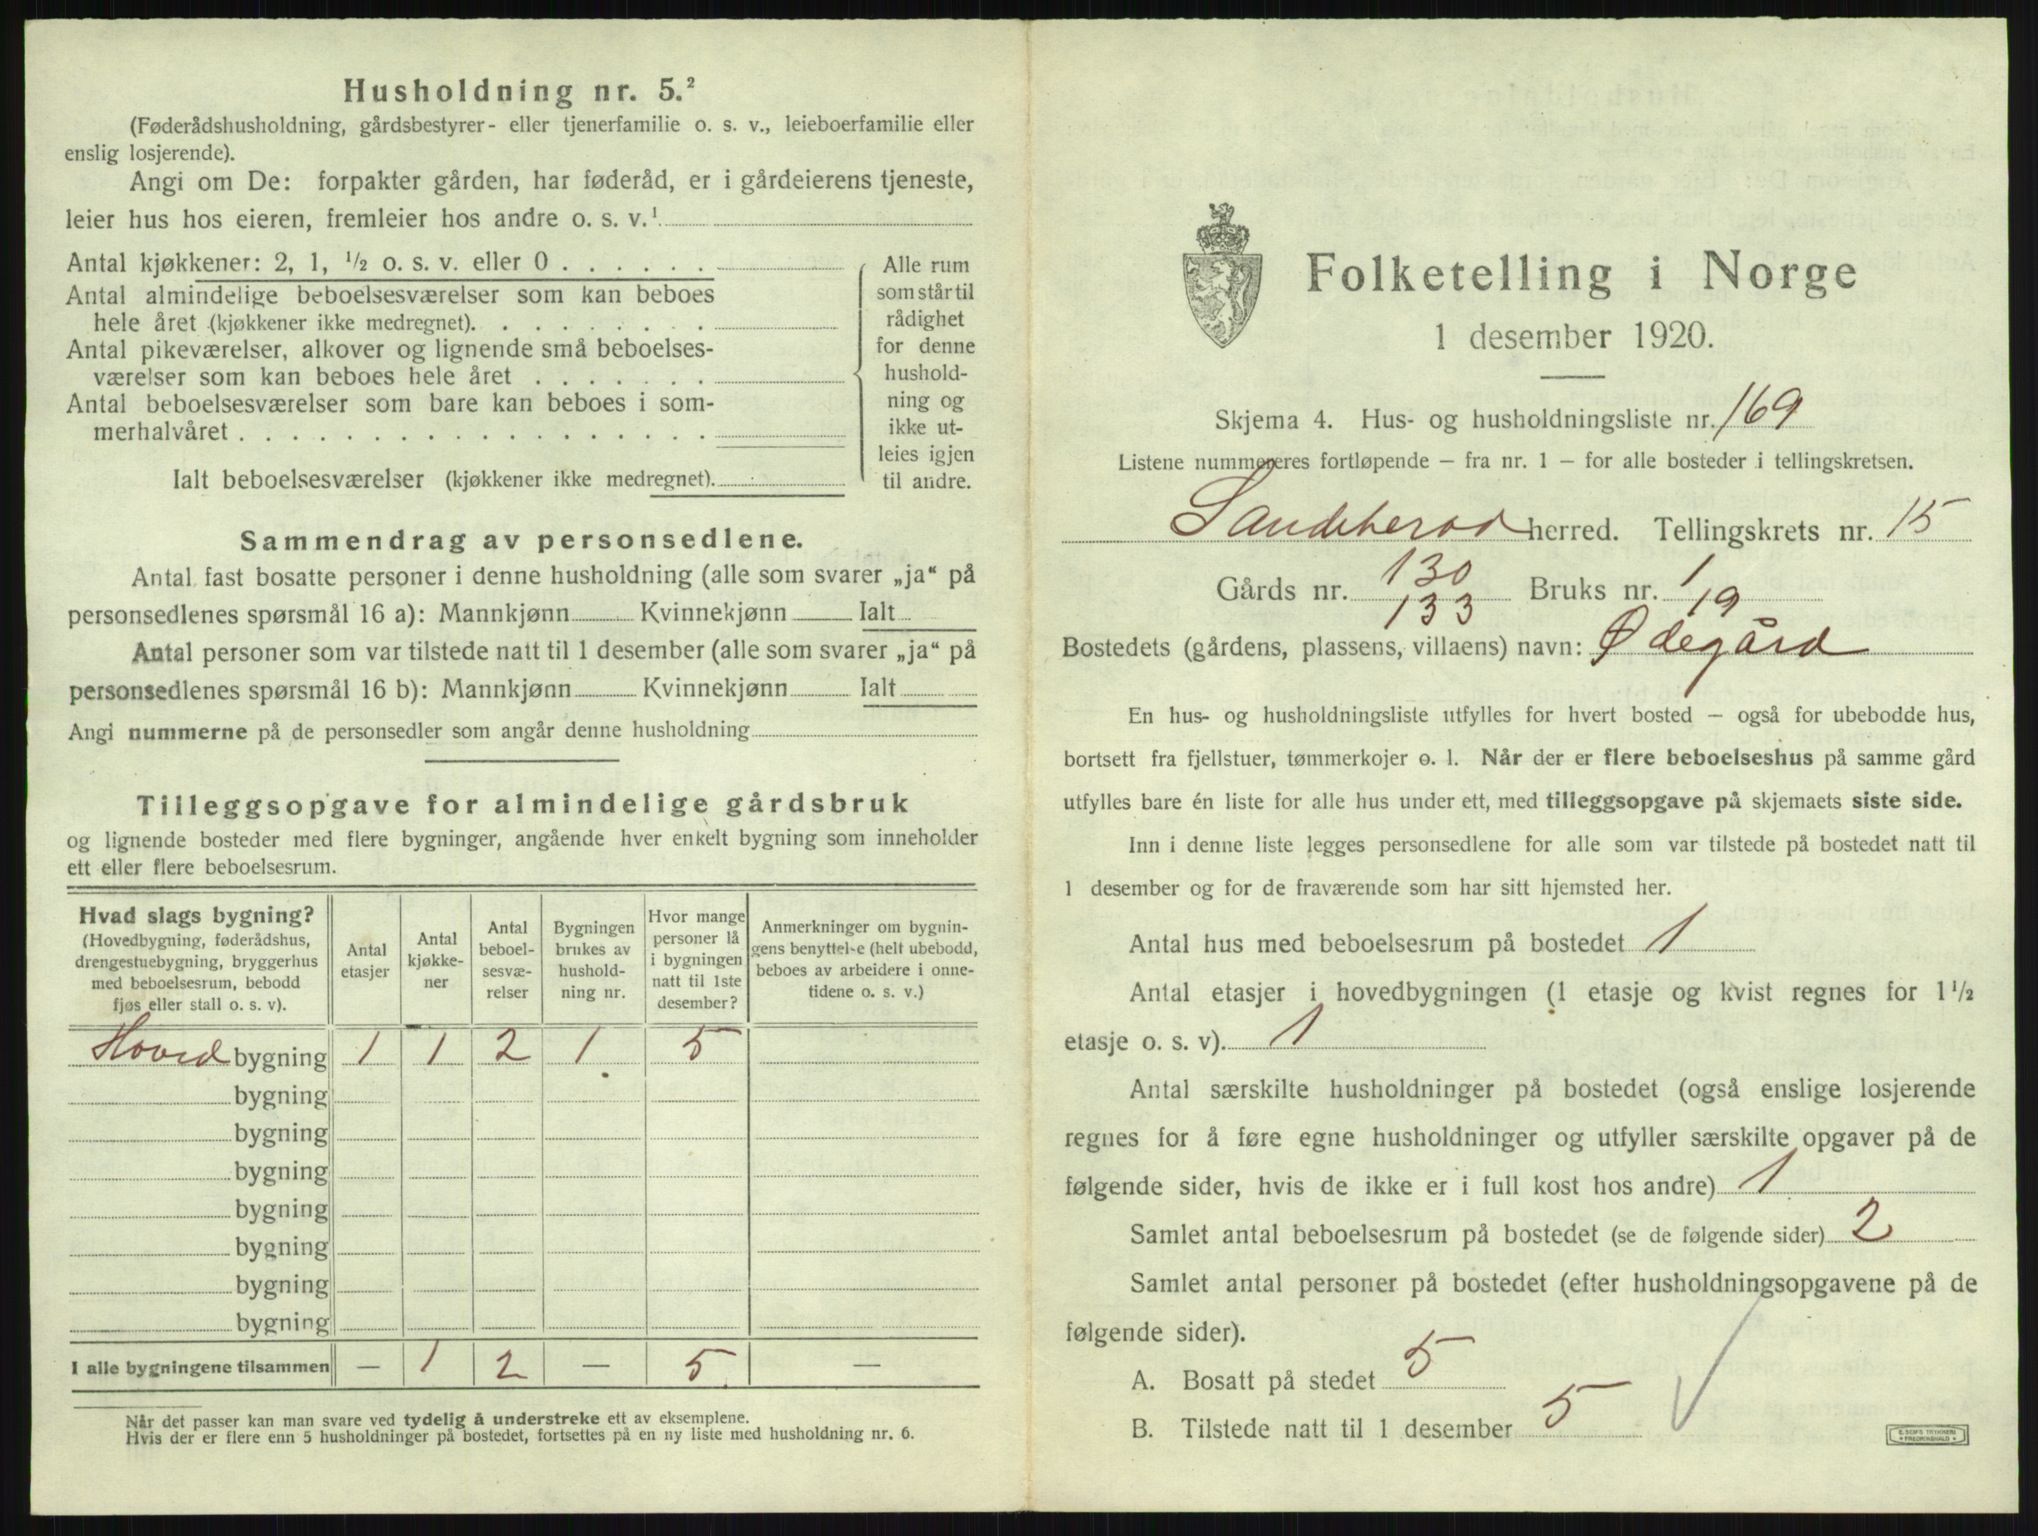 Husholdning nr. 5.²
(Føderådshusholdning, gårdsbestyrer- eller tjenerfamilie o. s. v., leieboerfamilie eller
enslig losjerende).
Angi om De: forpakter gården, har føderåd, er i gårdeierens tjeneste,
leier hus hos eieren, fremleier hos andre o. s. v.¹
Antal kjøkkener: 2, 1, ½ o. s. v. eller 0 . . . . . .
Antal almindelige beboelsesværelser som kan beboes
hele året (kjøkkener ikke medregnet). . . . . . . . .
Antal pikeværelser, alkover og lignende små beboelses-
værelser som kan beboes hele året . . . . . . .
Antal beboelsesværelser som bare kan beboes i som-
merhalvåret . . . . . . . . . . . . . . . . . .
Ialt beboelsesværelser (kjøkkener ikke medregnet).
Alle rum
som står til
rådighet
for denne
hushold-
ning og
ikke ut-
leies igjen
til andre.
Sammendrag av personsedlene.
Antal fast bosatte personer i denne husholdning (alle som svarer „ja“ på
personsedlenes spørsmål 16 a): Mannkjønn Kvinnekjønn Ialt
Antal personer som var tilstede natt til 1 desember (alle som svarer „ja“ på
personsedlenes spørsmål 16 b): Mannkjønn Kvinnekjønn Ialt
Angi nummerne på de personsedler som angår denne husholdning
Tilleggsopgave for almindelige gårdsbruk
og lignende bosteder med flere bygninger, angående hver enkelt bygning som inneholder
ett eller flere beboelsesrum.
Hvad slags bygning?
(Hovedbygning, føderådshus,
drengestuebygning, bryggerhus
med beboelsesrum, bebodd
fjøs eller stall o. s. v).
Antal
etasjer
Antal
kjøkke-
ner
Antal
beboel-
sesvæ-
relser
Bygningen
brukes av
hushold-
ning nr.
Hvor mange
personer lå
i bygningen
natt til 1ste
desember?
Anmerkninger om bygnin-
gens benyttelse (helt ubebodd,
beboes av arbeidere i onne-
tidene o. s. v.)
Hovedbygning 1 1 2 1 5
bygning
bygning
bygning
bygning
bygning
bygning
bygning
I alle bygningene tilsammen — 1 2 — 5 —
Når det passer kan man svare ved tydelig å understreke ett av eksemplene.
Hvis der er flere enn 5 husholdninger på bostedet, fortsettes på en ny liste med husholdning nr. 6.
Folketelling i Norge
1 desember 1920.
Skjema 4. Hus- og husholdningsliste nr. 169
Listene nummereres fortløpende — fra nr. 1 — for alle bosteder i tellingskretsen.
Sandeherod herred. Tellingskrets nr. 15
Gårds nr. 130 Bruks nr. 1
133 19
Bostedets (gårdens, plassens, villaens) navn: Ødegård
En hus- og husholdningsliste utfylles for hvert bosted — også for ubebodde hus,
bortsett fra fjellstuer, tømmerkojer o. l. Når der er flere beboelseshus på samme gård
utfylles bare én liste for alle hus under ett, med tilleggsopgave på skjemaets siste side.
Inn i denne liste legges personsedlene for alle som var tilstede på bostedet natt til
1 desember og for de fraværende som har sitt hjemsted her.
Antal hus med beboelsesrum på bostedet 1
Antal etasjer i hovedbygningen (1 etasje og kvist regnes for 1½
etasje o. s. v). 1
Antal særskilte husholdninger på bostedet (også enslige losjerende
regnes for å føre egne husholdninger og utfyller særskilte opgaver på de
følgende sider, hvis de ikke er i full kost hos andre) 1
Samlet antal beboelsesrum på bostedet (se de følgende sider) 2
Samlet antal personer på bostedet (efter husholdningsopgavene på de
følgende sider).
A. Bosatt på stedet 5
B. Tilstede natt til 1 desember 5